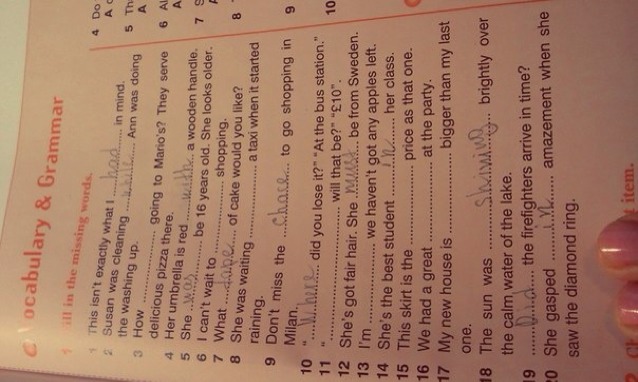 Vocabulary & Grammar
1 Fill in the missing words.
1 This isn't exactly what I ...had... in mind.
2 Susan was cleaning ...while... Ann was doing
the washing up.
3 How .................. going to Mario's? They serve
delicious pizza there.
4 Her umbrella is red ...with... a wooden handle.
5 She ...was... be 16 years old. She looks older.
6 I can't wait to .................. shopping.
7 What ...type... of cake would you like?
8 She was waiting .................. a taxi when it started
raining.
9 Don't miss the ...chace... to go shopping in
Milan.
10 "...Where... did you lose it?" "At the bus station."
11 ".................. will that be?" "£10".
12 She's got fair hair. She ...must... be from Sweden.
13 I'm .................. we haven't got any apples left.
14 She's the best student ...in... her class.
15 This skirt is the .................. price as that one.
16 We had a great .................. at the party.
17 My new house is .................. bigger than my last
one.
18 The sun was ...shinning... brightly over
the calm water of the lake.
19 ...Did... the firefighters arrive in time?
20 She gasped ...in... amazement when she
saw the diamond ring.
4 Do
A
5 Th
A
6 Al
A
7 S
8
9
10
item.